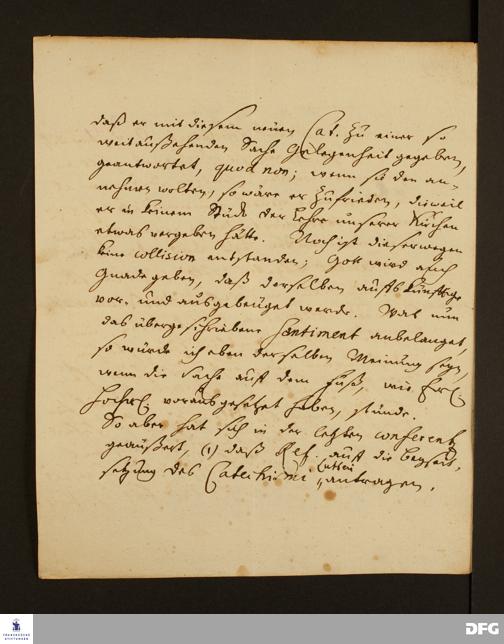 daß er mit diesem neuen Cat. zu einer so
weit aussehenden Sache Gelegenheit gegeben,
geantwortet, quod non; wenn sie den an-
nehmen wolten, so wäre er zufrieden, dieweil
er in keinem Stück der Lehre unserer Kirchen
etwas vergeben hätte. Noch ist dieserwegen
keine collision entstanden; Gott wird auch
Gnade geben, daß derselben aufs künftige
vor- und ausgebeuget werde. Was nun
das übergeschriebene Sentiment anbelanget,
so würde ich eben derselben Meinung seyn,
wenn die Sache auf dem Fuß, wie
vorausgesetzet haben, stünde.
So aber hat sich in der letzten conferentz
geäußert, (1) daß Ref. auf die Beyseit-
setzung des Catechismi Lutheri antragen.
FRANCKESCHE STIFTUNGEN
DFG